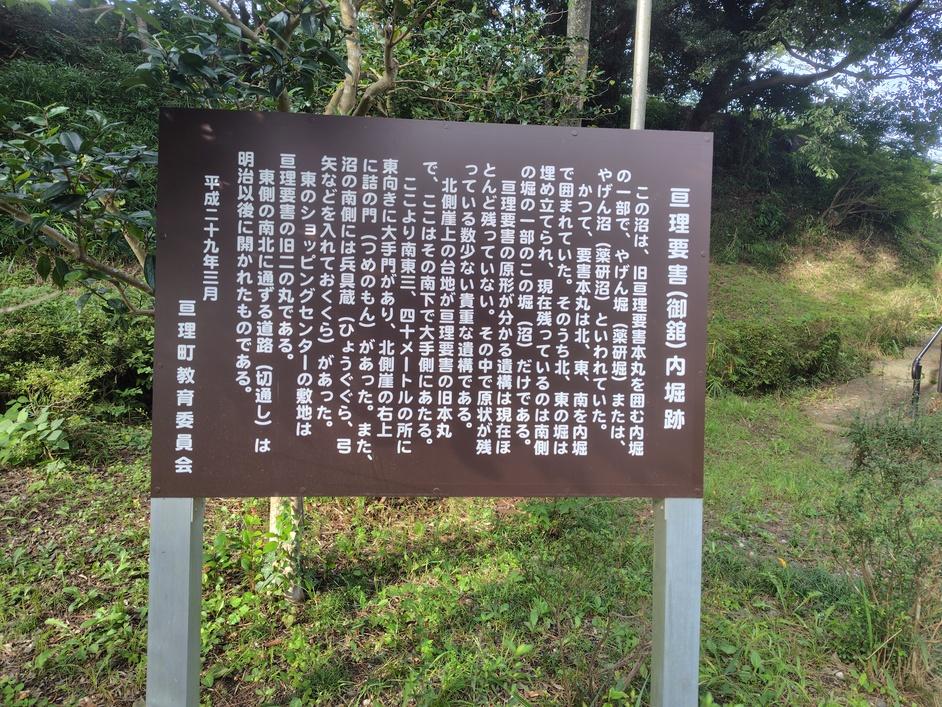 亘理要害(御舘)内堀跡
この沼は、旧亘理要害本丸を囲む内堀
の一部で、やげん堀(薬研堀)または、
やげん沼(薬研沼)といわれていた。
かつて、要害本丸は北、東、南を内堀
で囲まれていた。そのうち北、東の堀は
埋め立てられ、現在残っているのは南側
の堀の一部のこの堀(沼)だけである。
亘理要害の原形が分かる遺構は現在ほ
とんど残っていない。その中で原状が残
っている数少ない貴重な遺構である。
北側崖上の台地が亘理要害の旧本丸
で、ここはその南下で大手側にあたる。
ここより南東三、四十メートルの所に
東向きに大手門があり、北側崖の右上
に詰の門(つめのもん)があった。また、
沼の南側には兵具蔵(ひょうぐぐら、弓
矢などを入れておくくら)があった。
東のショッピングセンターの敷地は
亘理要害の旧二の丸である。
東側の南北に通ずる道路(切通し)は
明治以後に開かれたものである。
平成二十九年三月
亘理町教育委員会